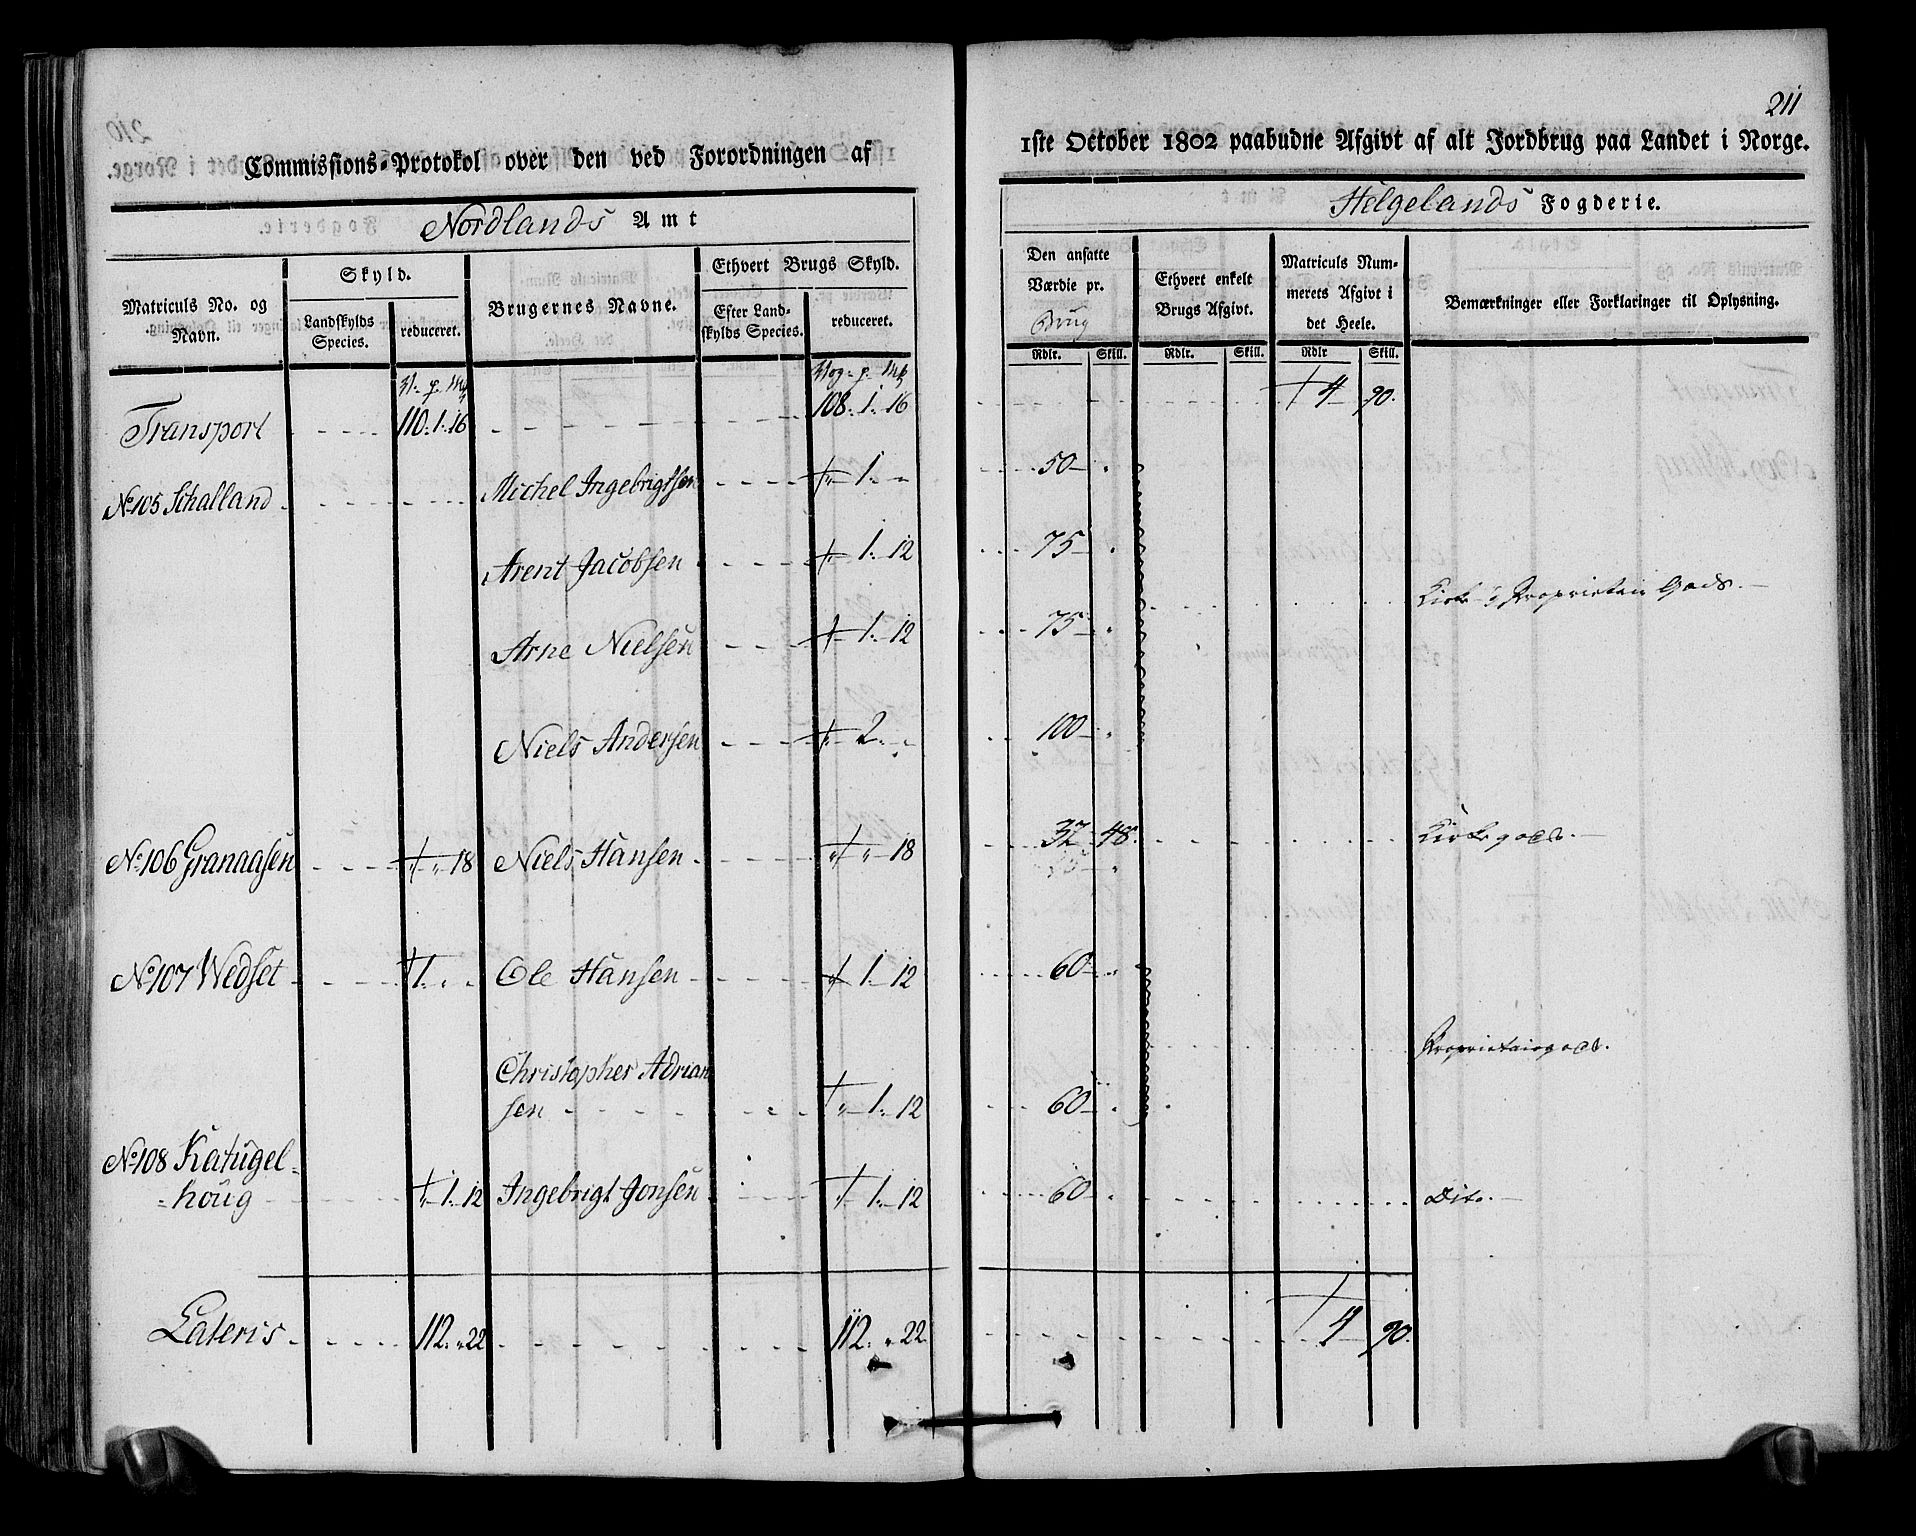 211
Commissions-Protokol over den ved Forordningen af
1ste October 1802 paabudne Afgivt af alt Jordbrug paa Landet i Norge.
Nordlands Amt
Helgelands Fogderie.
Matriculs No. og Navn.
Skyld.
Landskylds Species.
reduceret.
Brugernes Navne.
Ethvert Brugs Skyld.
Efter Landskylds Species.
reduceret.
Den ansatte Værdie pr. Brug
Rdlr. Skill.
Ethvert enkelt Brugs Afgivt.
Rdlr. Skill.
Matriculs Nummerets Afgivt i det Heele.
Rdlr Skill.
Bemærkninger eller Forklaringer til Oplysning.
Transport 110. 1. 16 108. 1. 16 4 90.
No 105 Schalland Michel Ingebrigtsen 1. 50
Arent Jacobsen 1. 12 75
Kirke & Proprietair Gods.
Arne Nielsen 1. 12 75
Niels Andersen 2. 100
No 106 Granaasen 18 Niels Hansen 18 32 48. Kirkegods.
No 107 Wedset 1. Ole Hansen 1. 12 60
Proprietairgods.
Christopher Adrian
sen 1. 12 60
No 108 Katugel=
=houg 1. 12 Ingebrigt Jonsen 1. 12 60 Dito.
Lateris 112. 22 112. 22. 4 90.